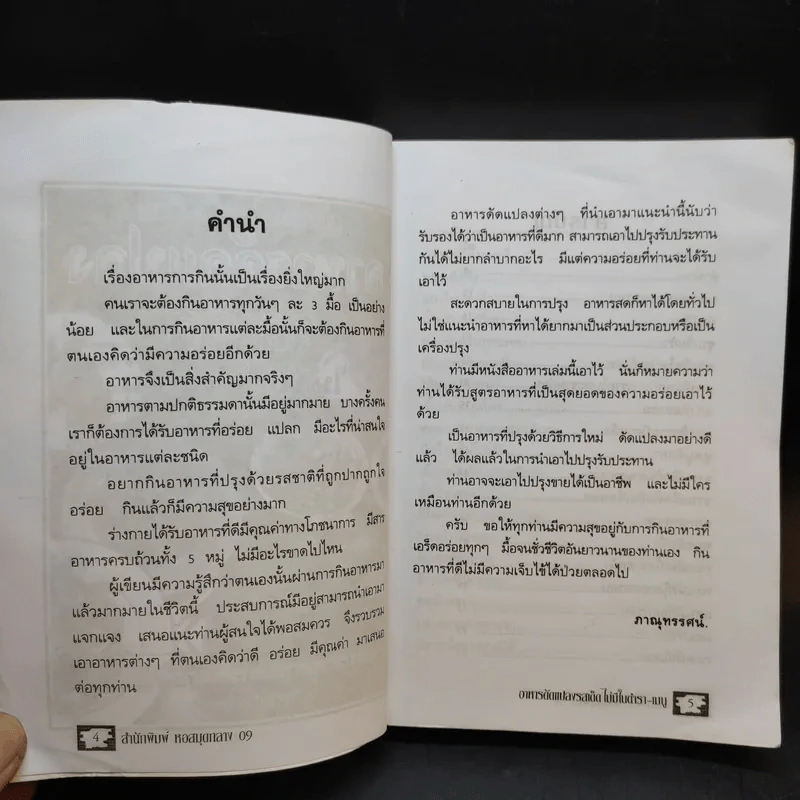 คำนำ
เรื่องอาหารการกินนั้นเป็นเรื่องยิ่งใหญ่มาก
คนเราจะต้องกินอาหารทุกวันๆ ละ 3 มื้อ เป็นอย่าง
น้อย และในการกินอาหารแต่ละมื้อนั้นก็จะต้องกินอาหารที่
ตนเองคิดว่ามีความอร่อยอีกด้วย
อาหารจึงเป็นสิ่งสำคัญมากจริงๆ
อาหารตามปกติธรรมดานั้นมีอยู่มากมาย บางครั้งคน
เราก็ต้องการได้รับอาหารที่อร่อย แปลก มีอะไรที่น่าสนใจ
อยู่ในอาหารแต่ละชนิด
อยากกินอาหารที่ปรุงด้วยรสชาติที่ถูกปากถูกใจ
อร่อย กินแล้วก็มีความสุขอย่างมาก
ร่างกายได้รับอาหารที่ดีมีคุณค่าทางโภชนาการ มีสาร
อาหารครบถ้วนทั้ง 5 หมู่ ไม่มีอะไรขาดไปไหน
ผู้เขียนมีความรู้สึกว่าตนเองนั้นผ่านการกินอาหารมา
แล้วมากมายในชีวิตนี้ ประสบการณ์มีอยู่สามารถนำเอามา
แจกแจง เสนอแนะท่านผู้สนใจได้พอสมควร จึงรวบรวม
เอาอาหารต่างๆ ที่ตนเองคิดว่าดี อร่อย มีคุณค่า มาเสนอ
ต่อทุกท่าน
4 สำนักพิมพ์ หอสมุดกลาง 09
อาหารดัดแปลงต่างๆ ที่นำเอามาแนะนำนี้นับว่า
รับรองได้ว่าเป็นอาหารที่ดีมาก สามารถเอาไปปรุงรับประทาน
กันได้ไม่ยากลำบากอะไร มีแต่ความอร่อยที่ท่านจะได้รับ
เอาไว้
สะดวกสบายในการปรุง อาหารสดก็หาได้โดยทั่วไป
ไม่ใช่แนะนำอาหารที่หาได้ยากมาเป็นส่วนประกอบหรือเป็น
เครื่องปรุง
ท่านมีหนังสืออาหารเล่มนี้เอาไว้ นั่นก็หมายความว่า
ท่านได้รับสูตรอาหารที่เป็นสุดยอดของความอร่อยเอาไว้
ด้วย
เป็นอาหารที่ปรุงด้วยวิธีการใหม่ ดัดแปลงมาอย่างดี
แล้ว ได้ผลแล้วในการนำเอาไปปรุงรับประทาน
ท่านอาจจะเอาไปปรุงขายได้เป็นอาชีพ และไม่มีใคร
เหมือนท่านอีกด้วย
ครับ ขอให้ทุกท่านมีความสุขอยู่กับการกินอาหารที่
เอร็ดอร่อยทุกๆ มื้อจนชั่วชีวิตอันยาวนานของท่านเอง กิน
อาหารที่ดีไม่มีความเจ็บไข้ได้ป่วยตลอดไป
ภาณุทรรศน์.
อาหารดัดแปลงรสเด็ด ไม่มีในตำรา-เมนู 5